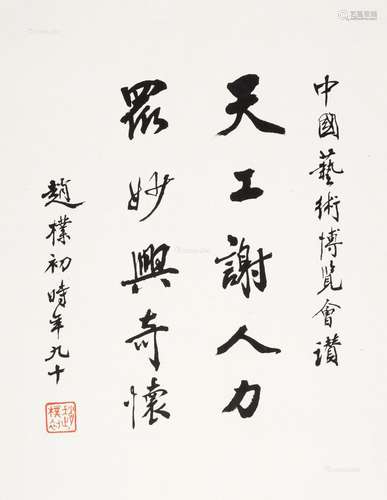 中國藝術博覽會讚
天工謝人力
眾妙興奇懷
趙樸初時年九十